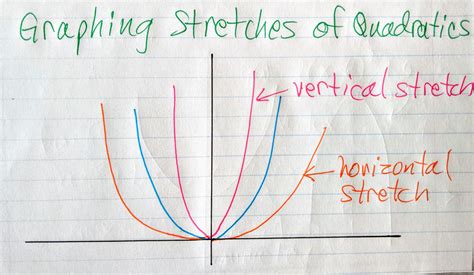 Graphing Stretches of Quadratics
vertical stretch
horizontal
stretch